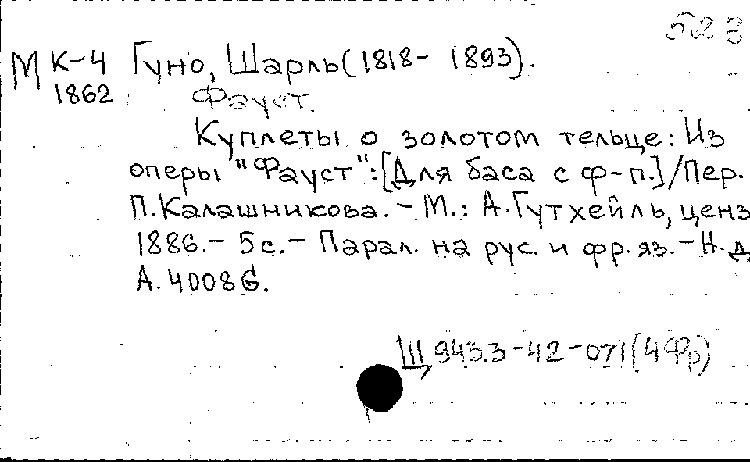 523
М К-4 Гуно, Шарль (1818- 1893).
1862 Фауст.
Куплеты о золотом тельце: Из
оперы "Фауст":[Для баса с ф-п.]/Пер.
П.Калашникова. - М.: А.Гутхейль, ценз
1886. - 5с. - Парал. на рус. и фр. яз. - Н.д
А.40086.
Щ943.3-42-071(4Фр)